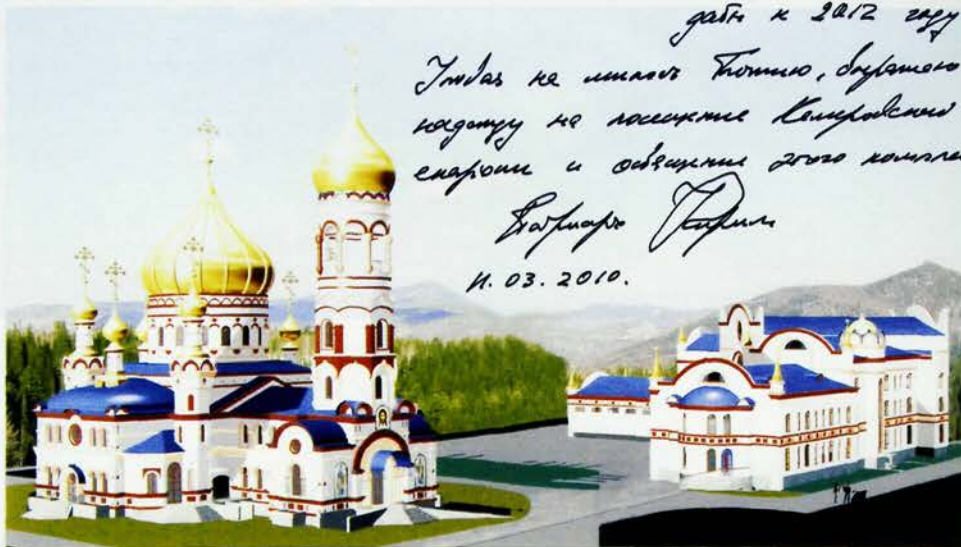 к 2012 году
Уповая на милость Божию, выражаю
надежду на посещение Кемеровской
епархии и освящение этого комплек
Патриарх Кирилл
11. 03. 2010.